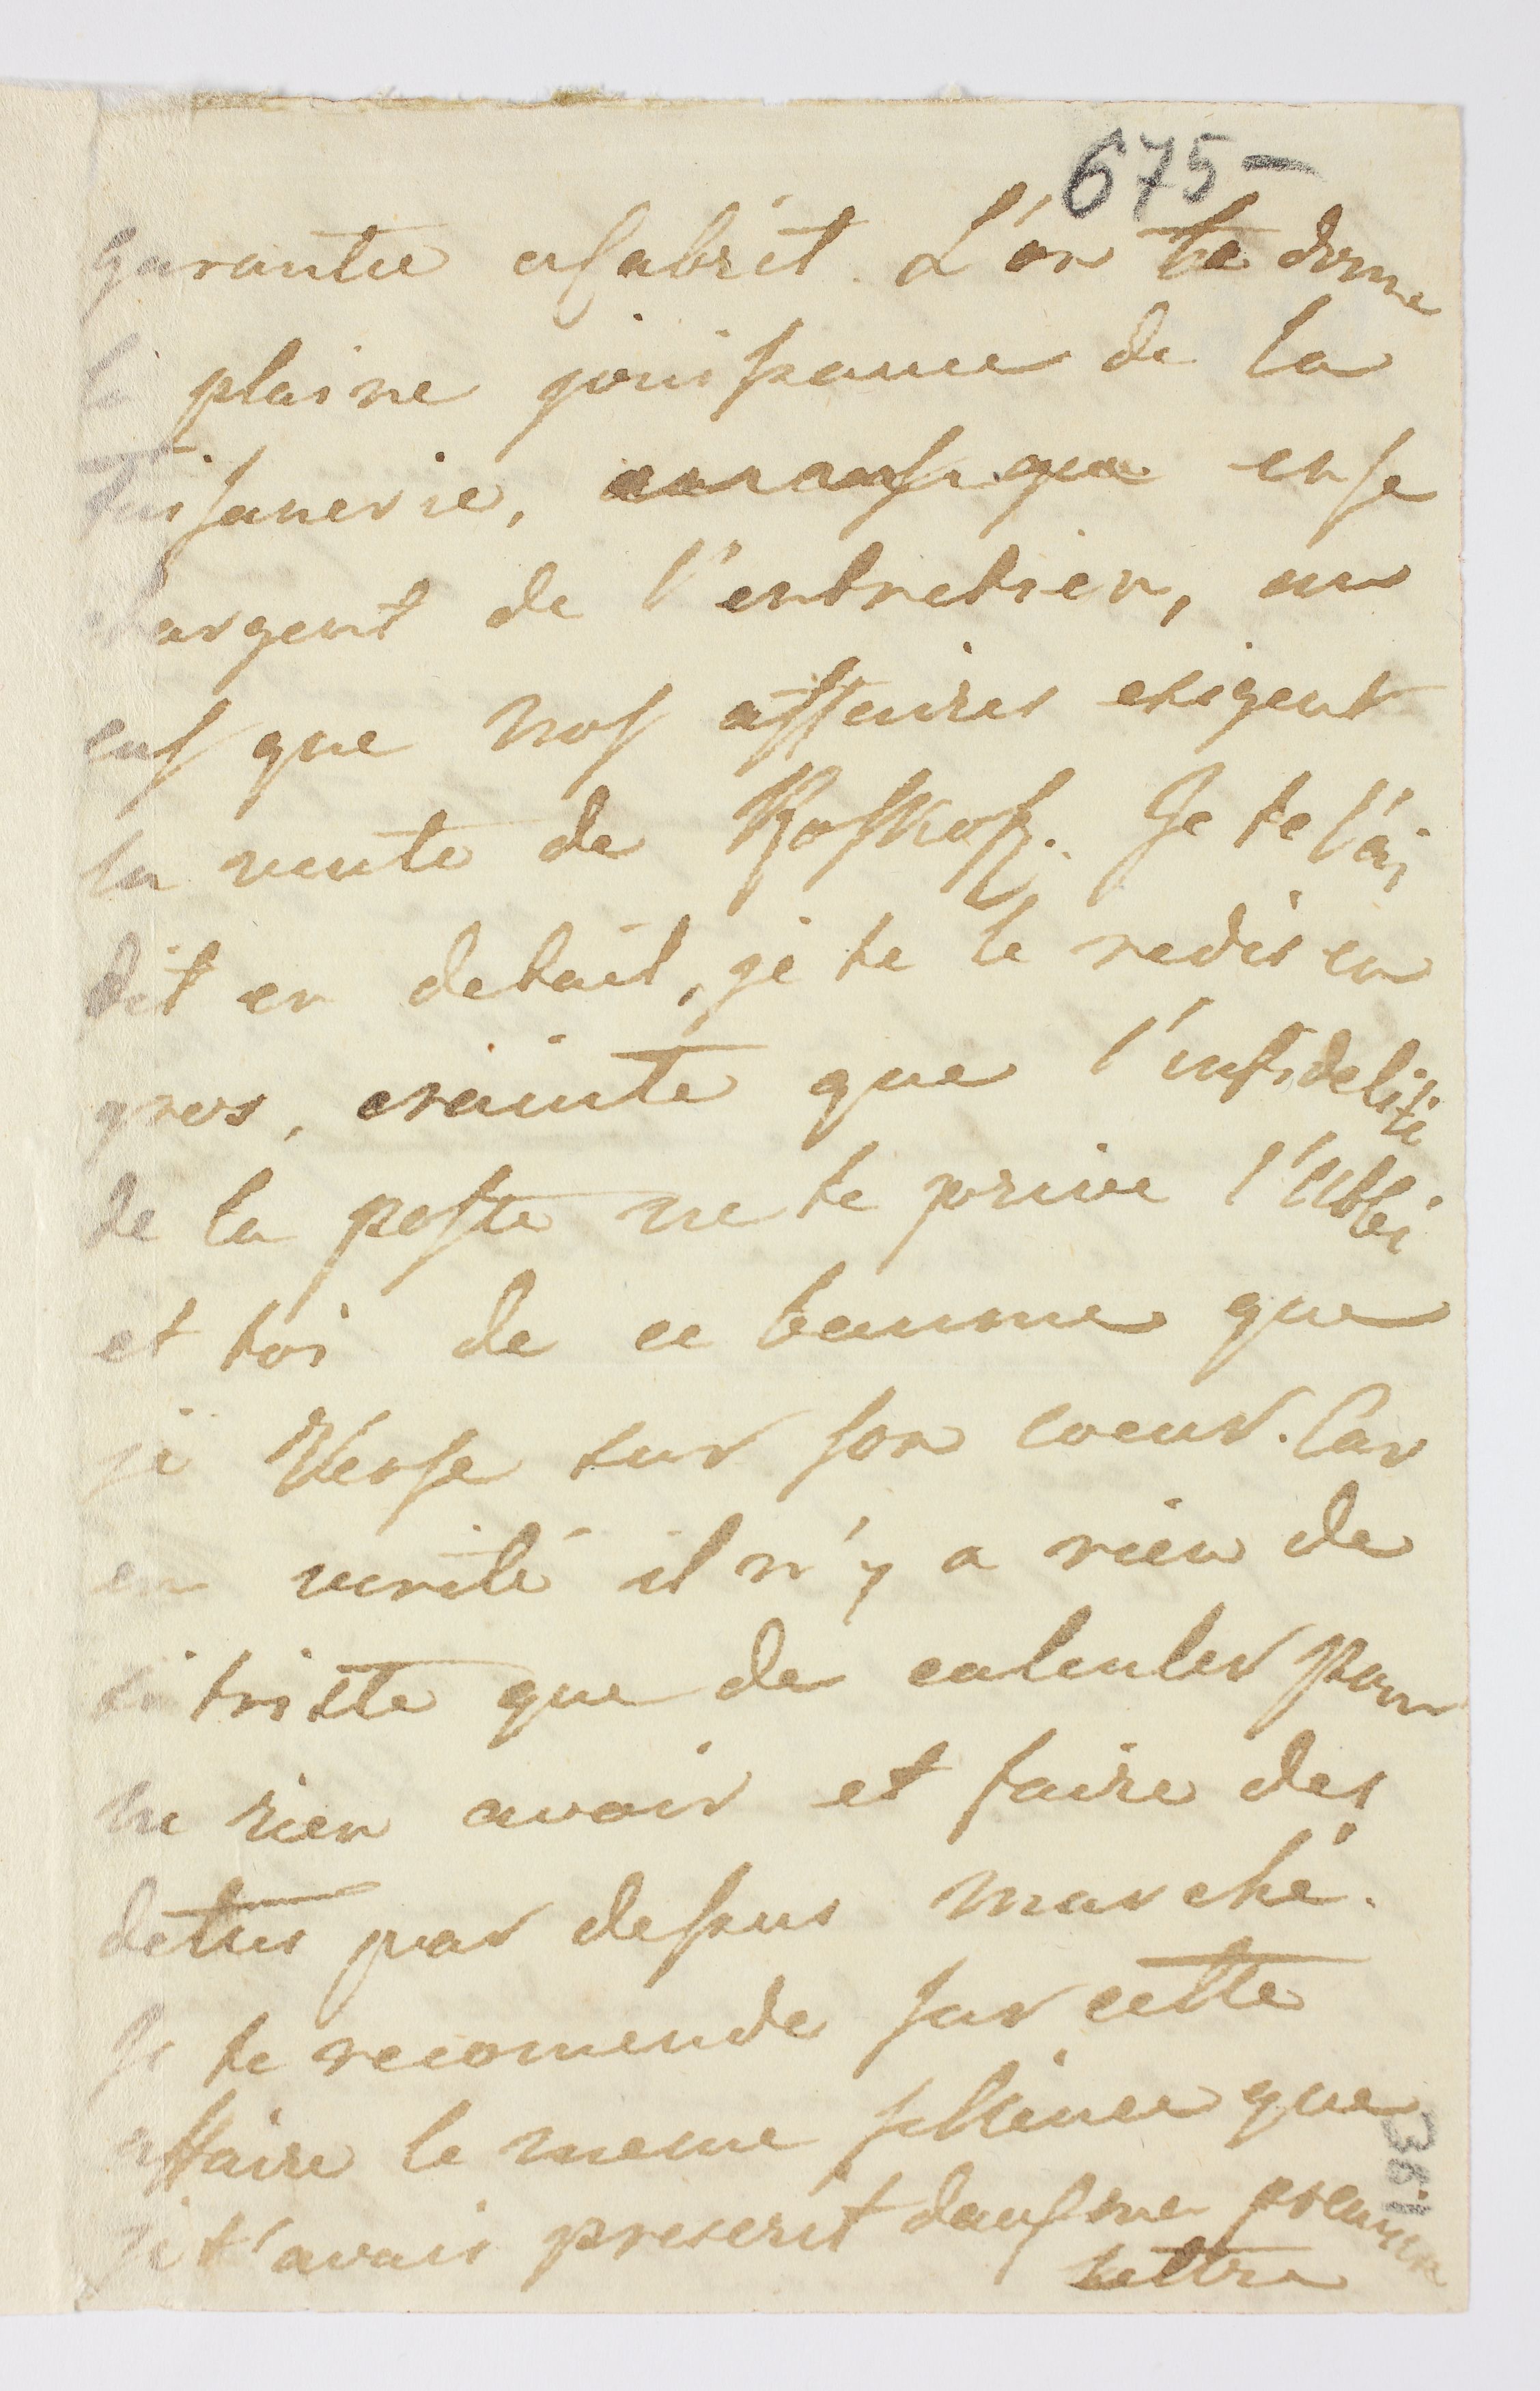 675-
garantie esabrit. L'on te donne
la plaine jouissance de la
faisanerie, en se
chargent de l'entretien, un
cas que nos affaires exigent
la vente de Roskoss. Je te l'ai
dit en detail, je te le redis en
gros, crainte que l'infidelité
de la poste ne te prive l'Abbé
et toi de ce beaume que
je verse sur son coeur. Car
en verité il n'y a rien de
si triste que de calculer pour
ne rien avoir et faire des
dettes par dessus marché.
Je te recomende sur cette
affaire le meme silence que
je t'avais prescrit dans ma premiere
lettre